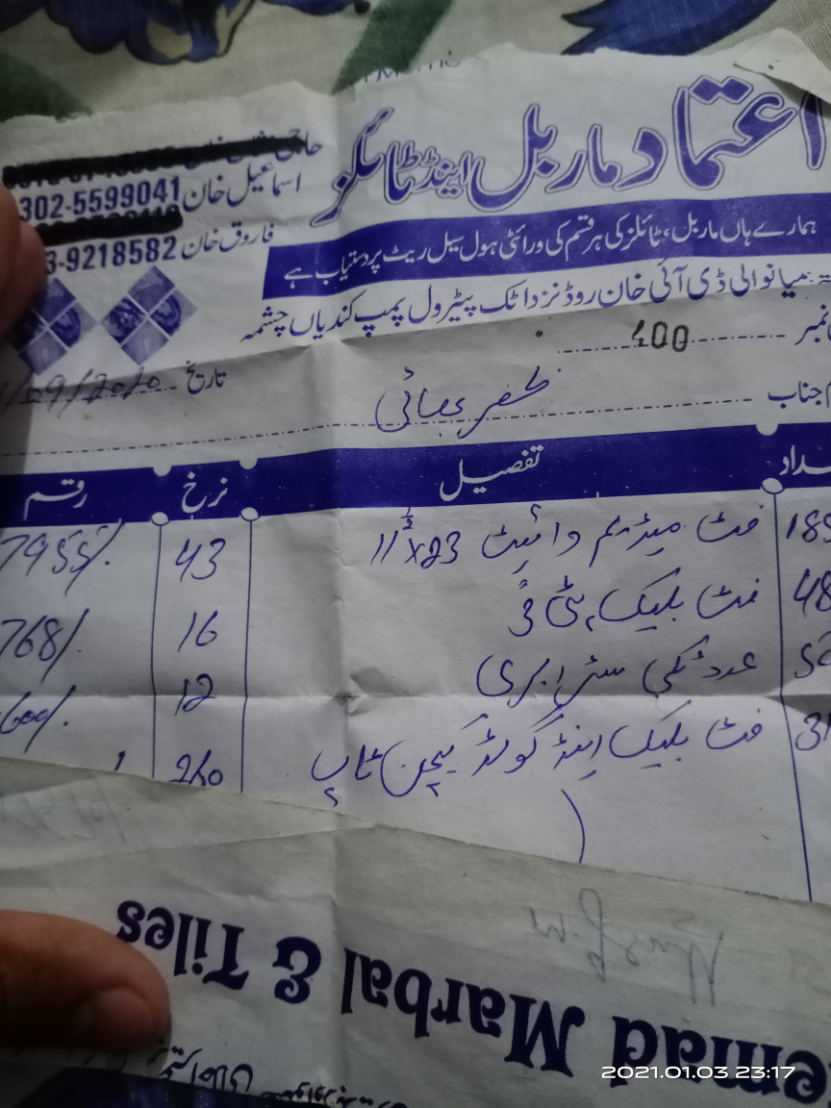 اعتماد ماربل اینڈ ٹائلز
اسماعیل خان 302-5599041
فاروق خان 3-9218582
ہمارے ہاں ماربل، ٹائلز کی ہر قسم کی ورائٹی ہول سیل ریٹ پر دستیاب ہے
میانوالی ڈی آئی خان روڈ نزد اٹک پیٹرول پمپ کندیاں چشمہ
نمبر 400
تاریخ /09/2020
جناب بھائی
تفصیل نرخ رقم
185 فٹ میڈیم وائیٹ 11½x23 43 7955/.
48 فٹ بلیک پٹی 3 16 768/.
50 عدد ٹکی سٹرابری 12 600/.
31 فٹ بلیک اینڈ گولڈ کیچن ٹاپ 260
emad Marbal & Tiles
2021.01.03 23:17